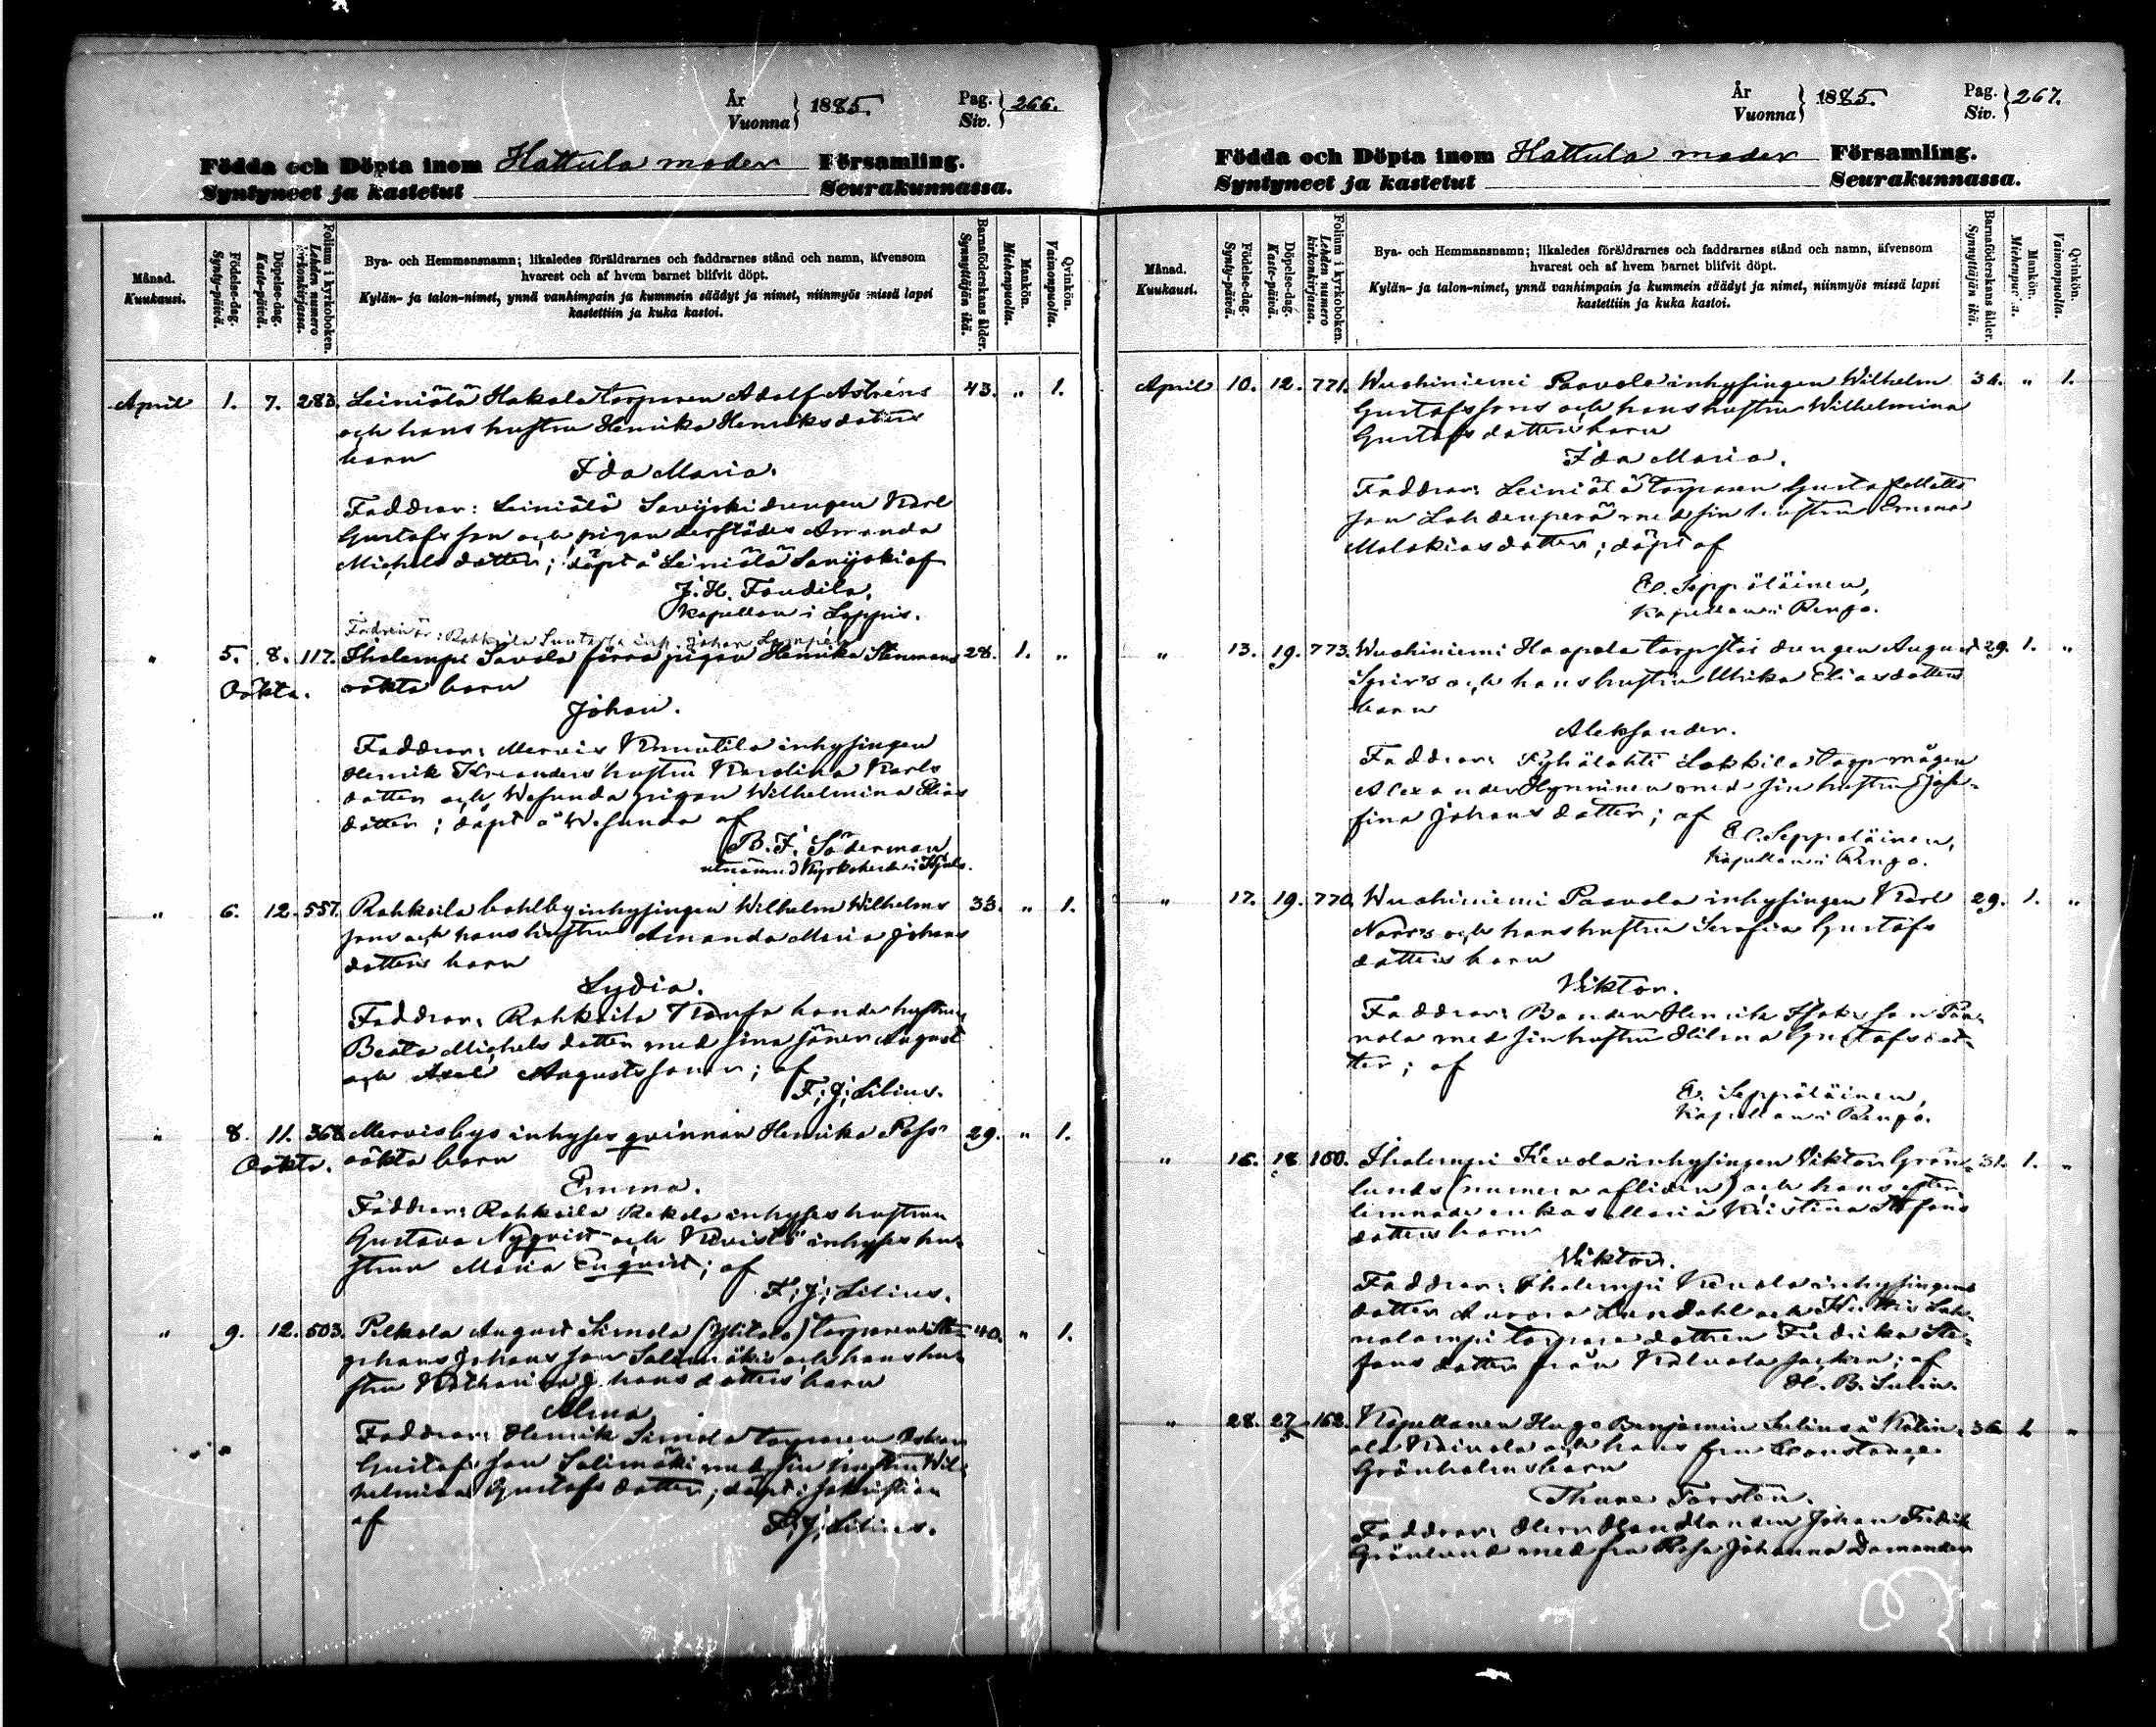 År
Vuonna } 1885. Pag.
Siv. } 266.
Födda och Döpta inom Hattula moder Församling.
Syntyneet ja kastetut Seurakunnassa.
Månad.
Kuukausi.
Födelse-dag.
Synty-päivä.
Döpelse-dag.
Kaste-päivä.
Folium i kyrkoboken.
Lehden numero
kirkonkirjassa.
Bya- och Hemmansnamn; likaledes föräldrarnes och faddrarnes stånd och namn, äfvensom
hvarest och af hvem barnet blifvit döpt.
Kylän- ja talon-nimet, ynnä vanhimpain ja kummein säädyt ja nimet, niinmyös missä lapsi
kastettiin ja kuka kastoi.
Barnaföderskans ålder.
Synnyttäjän ikä.
Mankön.
Miehenpuolia.
Qvinkön.
Vaimonpuolia.
April 1. 7. 283. Leiniälä Hakala torparen Adolf Astréns 43. " 1.
och hans hustru Henrika Henriksdotters
barn
Ida Maria.
Faddrar: Leiniälä Savijoki drengen Karl
Gustafsson och pigan derstädes Amanda
Michelsdotter; döpt å Leiniälä Savijoki af
J. H. Fondila,
Kapellan i Loppis.
" 5. 8. 117. Ihalempi Savola förra pigan Henrika Stenmans 28. 1. "
Oäkta. oäkta barn
Johan.
Faddrar: Mervis Knuutila inhysingen
Henrik Kreanders hustru Karolina Karls
dotter och Wesunda pigan Wilhelmina Elias
dotter; döpt å Wesunda af
B. F. Söderman
utnämnd Kyrkoherde i
" 6. 12. 557. Rahkoila bohlby inhysingen Wilhelm Wilhelms 33. " 1.
sons och hans hustru Amanda Maria Johans
dotters barn
Lydia.
Faddrar: Rahkoila Kanfa bonde hustrun
Beata Michelsdotter med sina söner August
och Axel Augustssöner; af
F; J; Lilius.
" 8. 11. 368. Mervis bys inhyses qvinnan Henrika Pass' 29. " 1.
Oäkta. oäkta barn
Emma.
Faddrar: Rahkoila Rekola inhyses hustrun
Gustava Nyqvist och inhyses hu-
strun Maria Enqvist; af
F; J; Lilius.
" 9. 12. 503. Pelkola August Simola (Ylitalo) torparen Ste- 40. " 1.
phans Johansson Salimäkis och hans hu-
stru Katharina Johansdotters barn
Alma.
Faddrar: Henrik Simola torparen Oskar
Gustafsson Salimäki med sin hustru Wil-
helmina Gustafsdotter; döpt i sakristian
af F; J; Lilius.
År
Vuonna } 1885. Pag.
Siv. } 267.
Födda och Döpta inom Hattula moder Församling.
Syntyneet ja kastetut Seurakunnassa.
Månad.
Kuukausi.
Födelse-dag.
Synty-päivä.
Döpelse-dag.
Kaste-päivä.
Folium i kyrkoboken.
Lehden numero
kirkonkirjassa.
Bya- och Hemmansnamn; likaledes föräldrarnes och faddrarnes stånd och namn, äfvensom
hvarest och af hvem barnet blifvit döpt.
Kylän- ja talon-nimet, ynnä vanhimpain ja kummein säädyt ja nimet, niinmyös missä lapsi
kastettiin ja kuka kastoi.
Barnaföderskans ålder.
Synnyttäjän ikä.
Mankön.
Qvinkön.
Vaimonpuolia.
April 10. 12. 771. Wuohiniemi Paavola inhysingen Wilhelm 34. " 1.
Gustafssons och hans hustru Wilhelmina
Gustafsdotters barn
Ida Maria.
Faddrar: Leiniälä torparen Gustaf Matts
son Lahdenperä med sin hustru Emma
Malakiasdotter; döpt af
E. Seppäläinen,
Kapellan i Rengo.
" 13. 19. 773. Wuohiniemi Haapala torpstor drengen August 29. 1. "
och hans hustru Ulrika Eliasdotters
barn
Aleksander.
Faddrar: Pyhälahti Lokkila torp mågen
Alexander Hynninen med sin hustru Jose-
fina Johansdotter; af
E. Seppäläinen,
Kapellan i Rengo.
" 17. 19. 770. Wuohiniemi Paavola inhysingen Karl 29. 1. "
och hans hustru Serafia Gustafs
dotters barn
Viktor.
Faddrar: Bonden Henrik Isaksson Paa-
vola med sin hustru Hilma Gustafsdot-
ter; af
E. Seppäläinen,
Kapellan i Rengo.
" 16. 18. 160. Ihalempi Kevola inhysingen Viktor Grön- 31. 1. "
lunds (numera afliden) och hans efter-
lemnade enkas Maria Kristina Stefans
dotters barn
Viktor.
Faddrar: Ihalempi Kevola inhysingens
dotter Aurora Lundahl och
torpare dottren Fredrika Ste-
fansdotter från Kalvola socken; af
H. B. Lilius.
" 28. 27/5 162. Kapellanen Hugo Benjamin Lilius å
och hans fru Constance
Grönholms barn
Thure Torsten.
Faddrar: Herr Handlanden Johan Fredrik
Grönlund med fru Rosa Johanna Damander